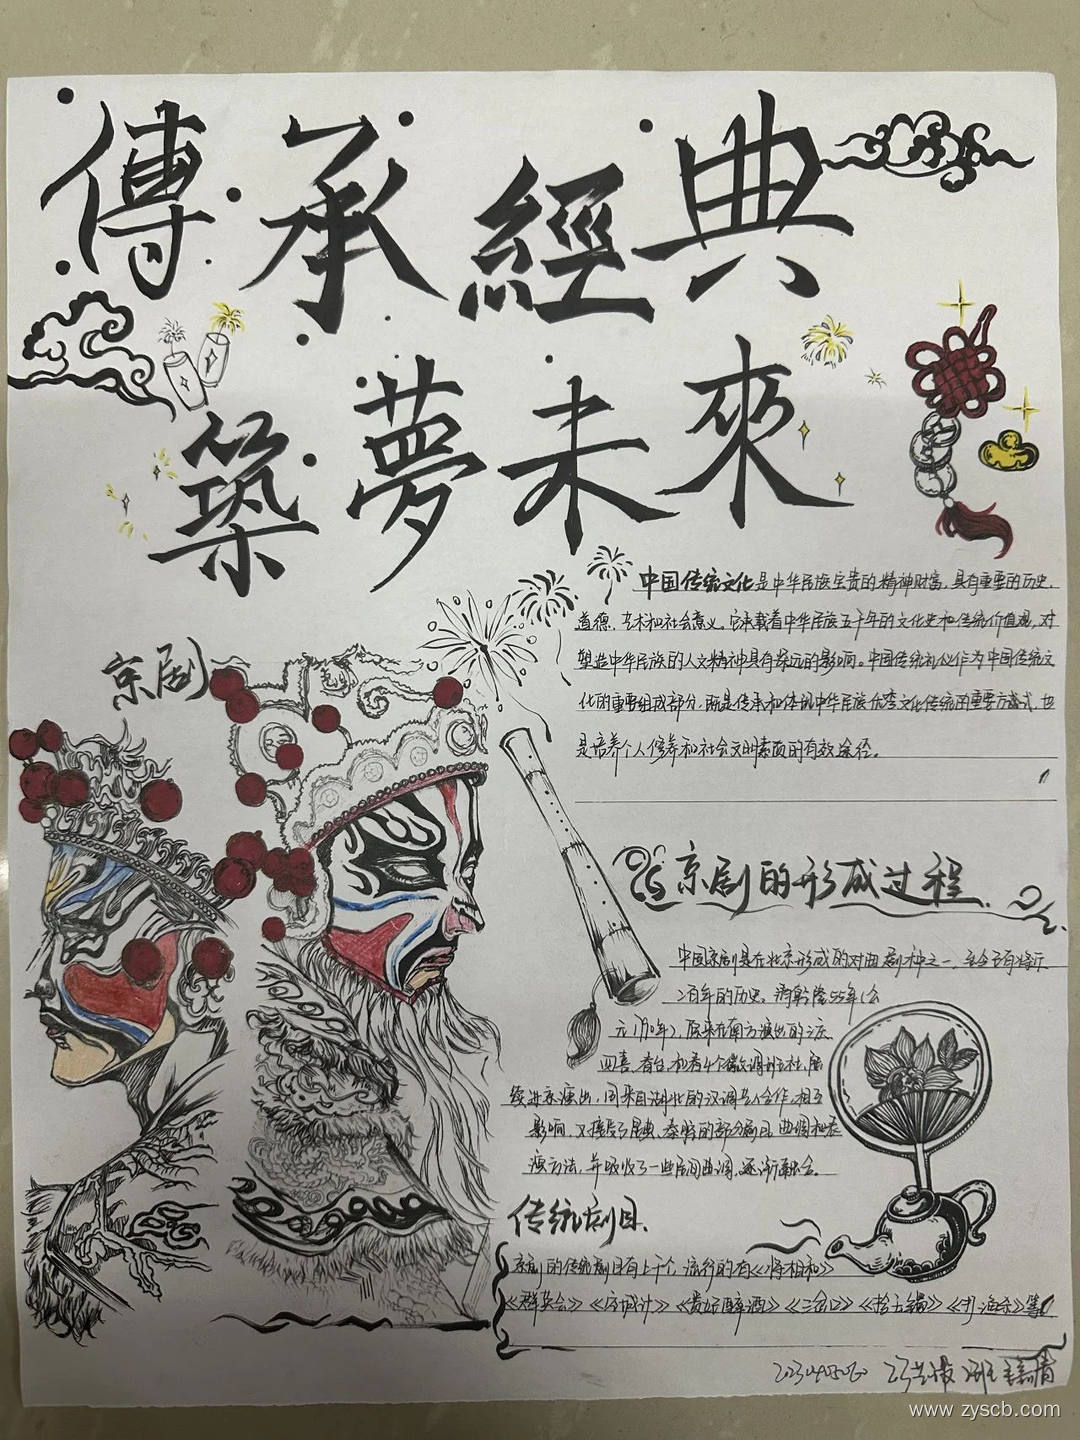 傳承經典
築夢未來
中国传统文化是中华民族宝贵的精神财富,具有重要的历史、
道德、艺术和社会意义。它承载着中华民族五千年的文化史和传统价值观,对
塑造中华民族的人文精神具有深远的影响。中国传统礼仪作为中国传统文
化的重要组成部分,既是传承和体现中华民族优秀文化传统的重要方式,也
是培养个人修养和社会文明素质的有效途径。
京剧
京剧的形成过程
中国京剧是在北京形成的戏曲剧种之一,至今已有将近
二百年的历史。清乾隆55年(公
元1790年),原来在南方演出的三庆
四喜、春台、和春4个徽调班社,陆
续进京演出,同来自湖北的汉调艺人合作,相互
影响,又接受了昆曲、秦腔的部分剧目、曲调和表
演方法,并吸收了一些民间曲调,逐渐融合。
传统剧目
京剧的传统剧目有上千个,流行的有《将相和》
《群英会》《空城计》《贵妃醉酒》《三岔口》《拾玉镯》《打渔杀》等
班
www.zyscb.com